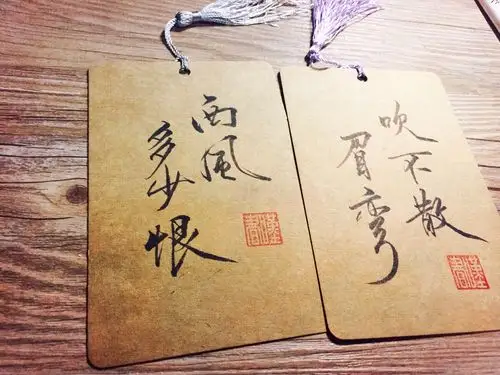 西風
多少恨
吹不散
眉弯